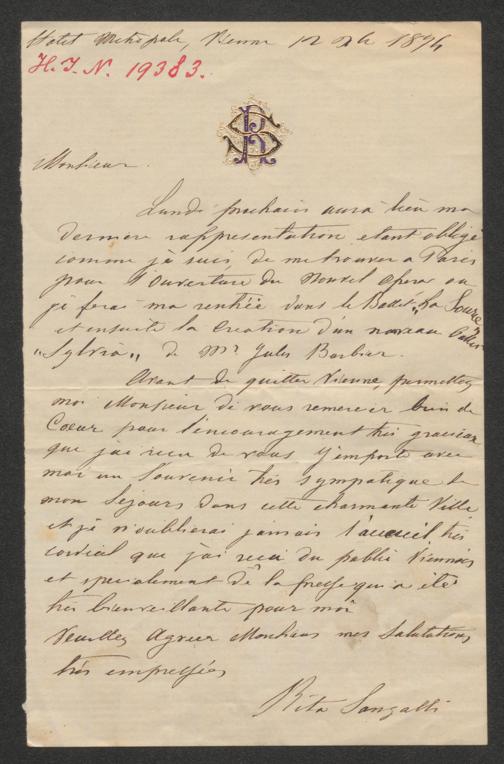 Hotel Metropole, Vienne 12 1874
H. I. N. 19383.
Monsieur.
Lundi prochain aura lieu ma
derniere rappresentation etant obligé
comme je suis de me trouver a Paris
pour l'ouverture du Nouvel Opera ou
je ferai ma rentrée dans le Ballet "La Source"
et ensuite la Creation d'un nouveau Ballet
"Sylvia" de Mr Jules Barbier.
Avant de quitter Vienne, permettez
moi Monsieur di vous remercier bien de
Coeur pour l'encouragement très gracieux
que j'ai recu de vous J'emporte avec
moi un Souvenir très sympatique de
mon Sejours dans cette charmante Ville
et je n'oublierai jamais l'accueil très
cordial que j'ai recu du public Viennois
et specialement de la presse qui a été
très bienveillante pour moi
Veuillez Agreer Monsieur mes Salutations
très empressées
Rita Sangalli